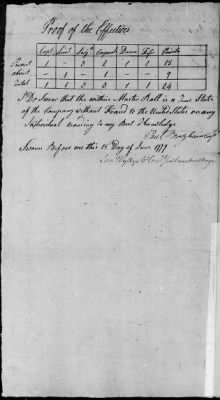 Proof of the Effectives
Capt Lieut Serjts Corporals Drum Fife Privates
Present 1 - 3 2 1 1 15
absent - 1 - 1 - - 9
Total 1 1 3 3 1 1 24
I Do Swear that the within Muster Roll is a True State
of the Company without Fraud to the United States or any
Individual according to my Best Knowledge
Capt
Sworn Before me this 15 Day of June 1779